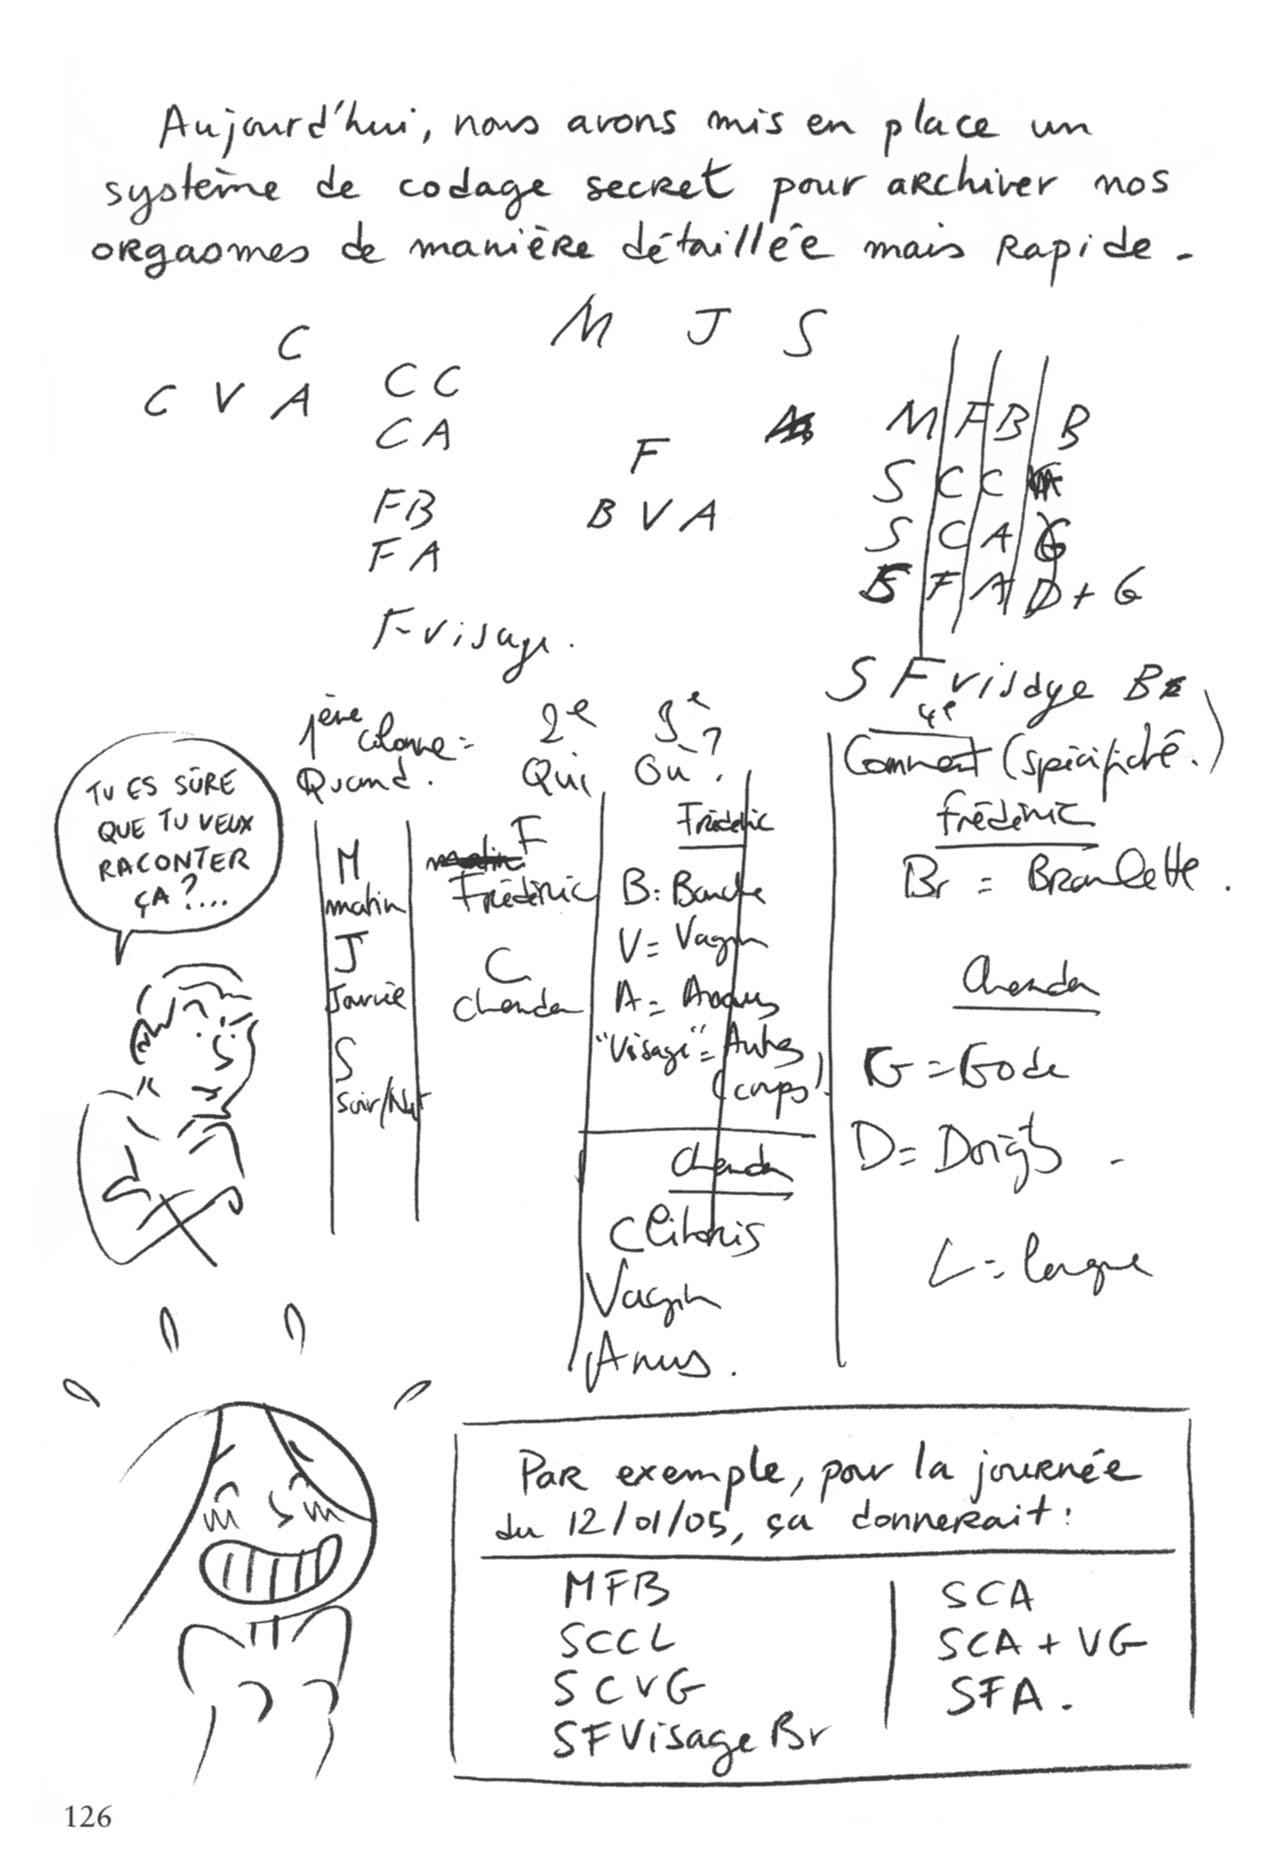 Aujourd'hui, nous avons mis en place un
système de codage secret pour archiver nos
orgasmes de manière détaillée mais rapide.
M J S
C
C V A
C C
C A
F B
F A
F-visage.
F
B V A
M F B B
S C C
S C A G
S F A D + G
S F visage Br
1ère colonne =
Quand.
2e
Qui
3e
Où?
4e
Comment (spécificité.)
TU ES SÛRE
QUE TU VEUX
RACONTER
ÇA?...
M
matin
J
Journée
S
Soir/Nuit
F
Frédéric
C
Chenda
Frédéric
B: Bouche
V= Vagin
A= Anus
"Visage"= Autres
(corps)
Chenda
Clitoris
Vagin
Anus.
Frédéric
Br = Branlette.
Chenda
G=Gode
D= Doigts
L= langue
Par exemple, pour la journée
du 12/01/05, ça donnerait:
MFB
SCCL
SCVG
SFVisageBr
SCA
SCA + VG
SFA.
126